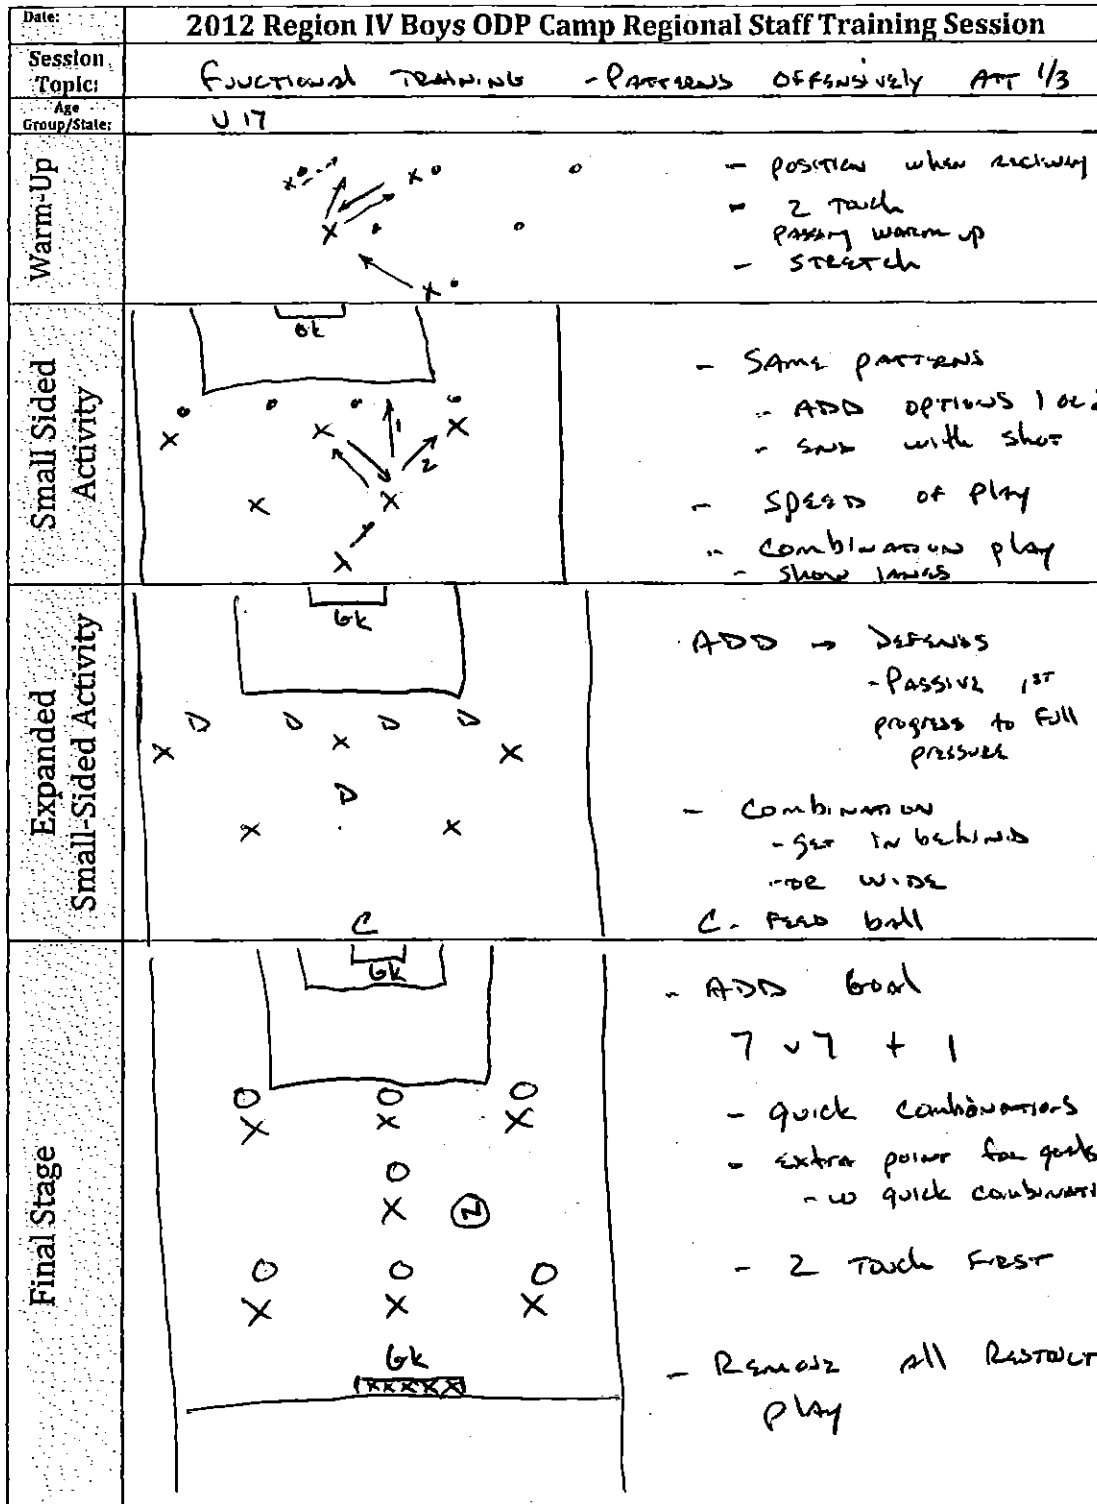 Date:
2012 Region IV Boys ODP Camp Regional Staff Training Session
Session Topic:
Functional Training - Patterns Offensively Att 1/3
Age Group/State:
U 17
Warm-Up
- Position when
- 2 Touch
passing warm up
- Stretch
Small Sided Activity
GK
1
2
- Same patterns
- Add options 1 or 2
- with shot
- Speed of play
- Combination play
- Show lanes
Expanded Small-Sided Activity
GK
C
Add → Defends
- Passive 1st
progress to full
pressure
- Combination
- get in behind
- or wide
C - Feed ball
Final Stage
GK
N
GK
XXXXX
- Add Goal
7 v 7 + 1
- quick combinations
- extra point for goals
- w quick combinati
- 2 Touch First
- Remove all Restrict
play